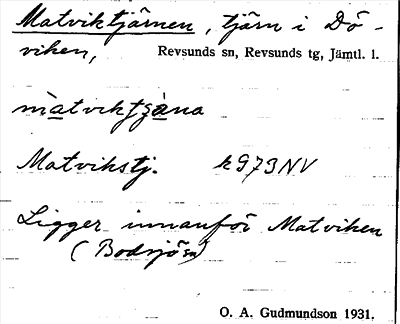 Matviktjärnen, tjärn i Dö-
viken, Revsunds sn, Revsunds tg, Jämtl. l.
Matvikstj. k 973 NV
Ligger innanför Matviken
(Bodsjö sn)
O. A. Gudmundson 1931.